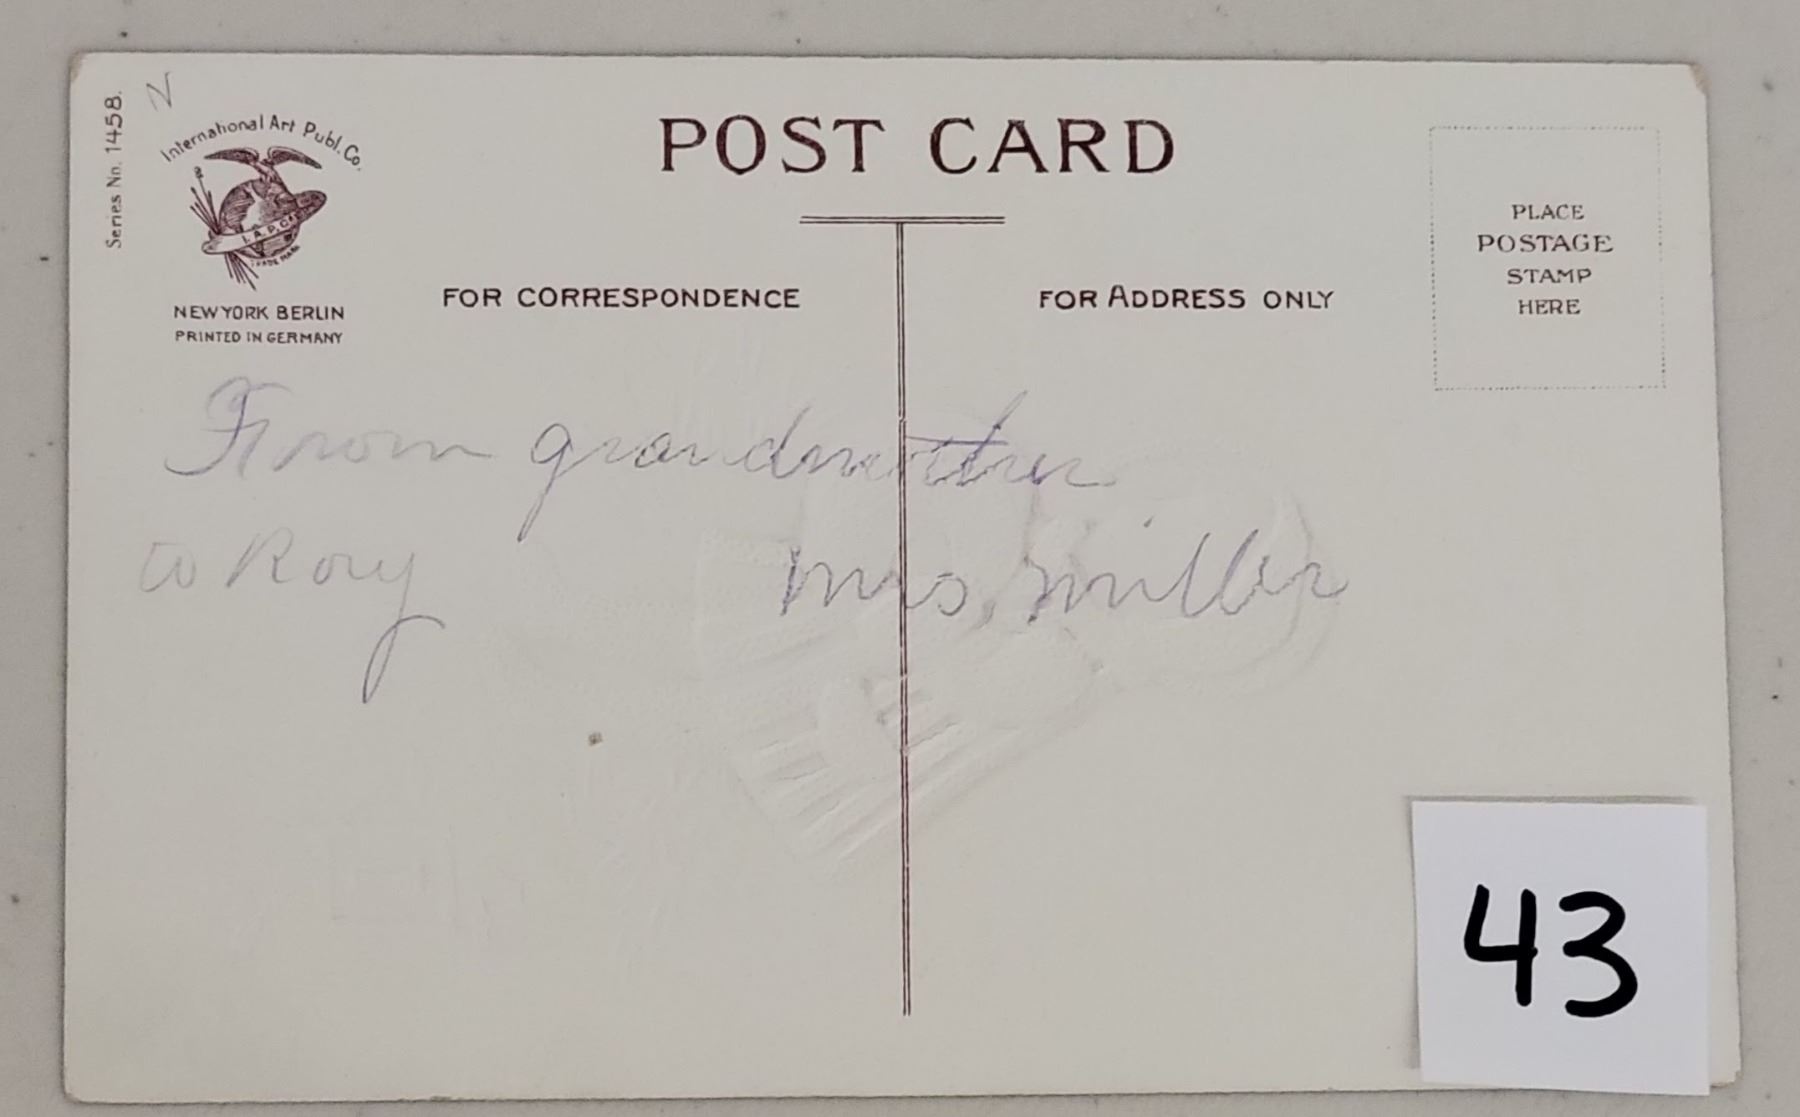 Series No. 1458.
N
International Art Publ. Co.
I.A.P.Co.
TRADE MARK
NEW YORK BERLIN
PRINTED IN GERMANY
POST CARD
FOR CORRESPONDENCE
FOR ADDRESS ONLY
PLACE
POSTAGE
STAMP
HERE
From grandmother
to Rory Mrs, Miller
43